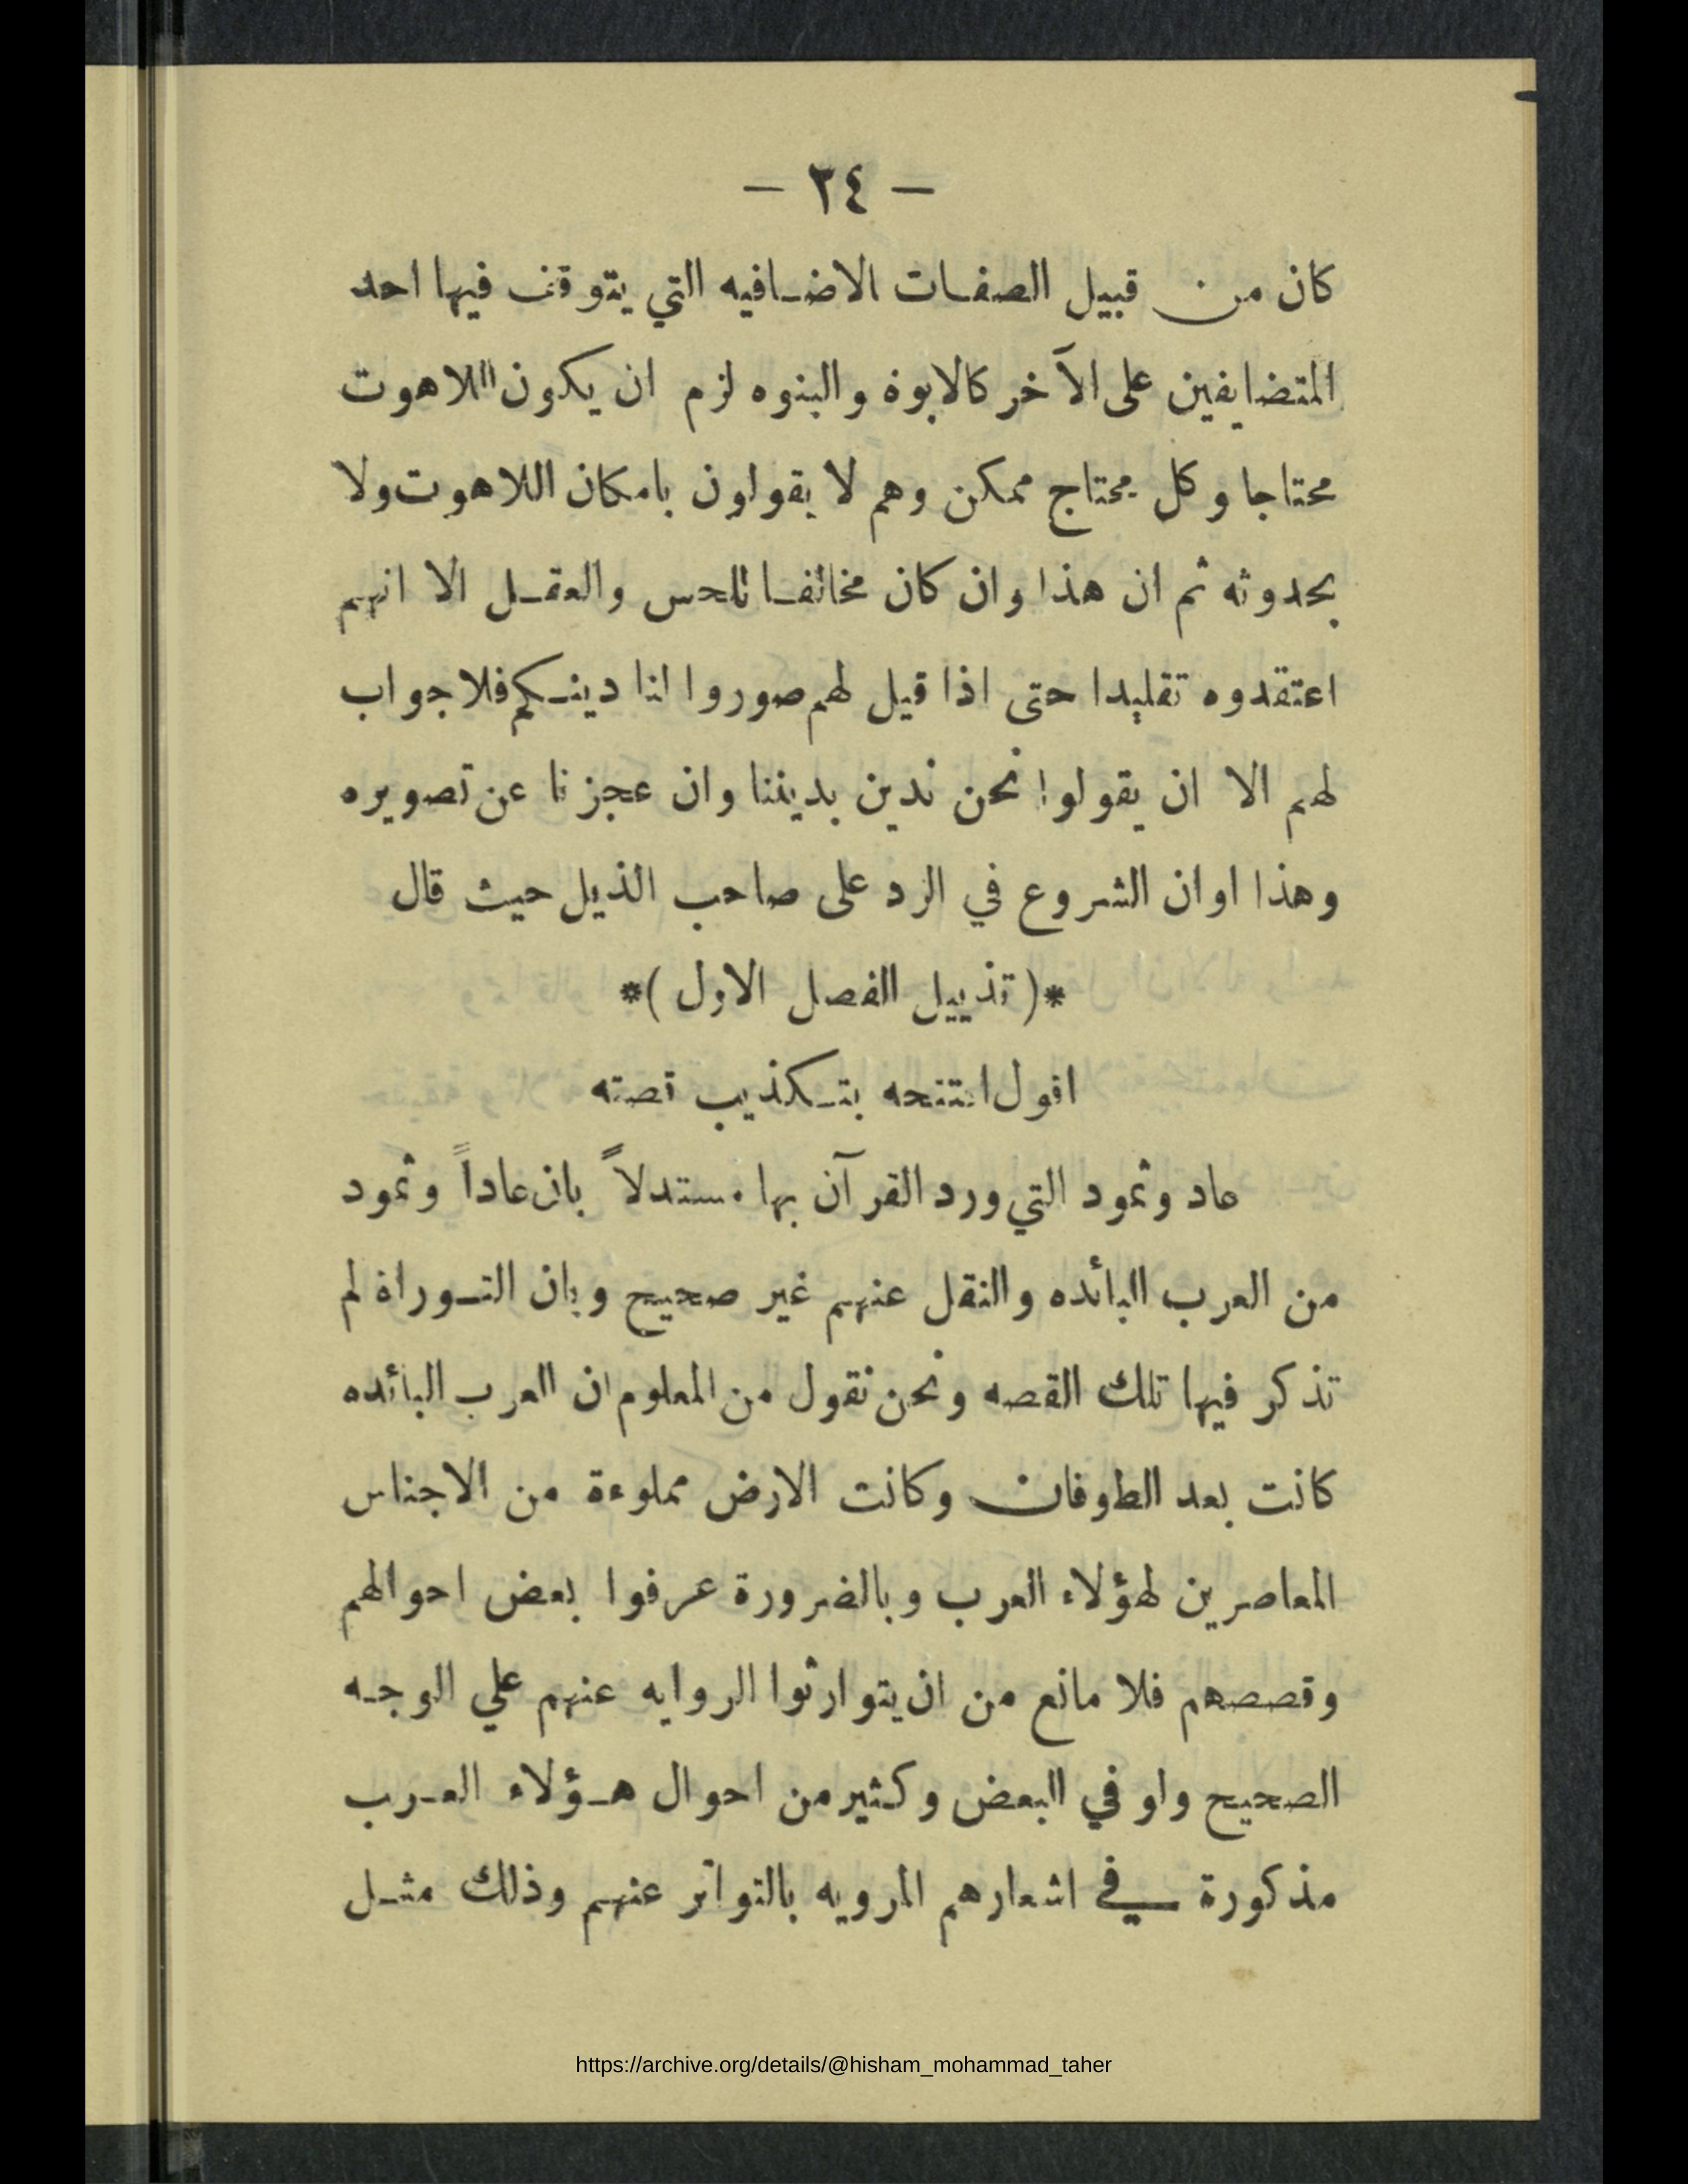 — ٢٤ —
كان من قبيل الصفات الاضافيه التي يتوقف فيها احد
المتضايفين على الآخر كالابوة والبنوه لزم ان يكون اللاهوت
محتاجا وكل محتاج ممكن وهم لا يقولون بامكان اللاهوت ولا
بحدوثه ثم ان هذا وان كان مخالفا للحس والعقل الا انهم
اعتقدوه تقليدا حتى اذا قيل لهم صوروا لنا دينكم فلا جواب
لهم الا ان يقولوا نحن ندين بديننا وان عجزنا عن تصويره
وهذا اوان الشروع في الرد على صاحب الذيل حيث قال
*( تذييل الفصل الاول )*
اقول افتتحه بتكذيب قصته
عاد وثمود التي ورد القرآن بها مستدلاً بان عاداً وثمود
من العرب البائده والنقل عنهم غير صحيح وبان التوراة لم
تذكر فيها تلك القصه ونحن نقول من المعلوم ان العرب البائده
كانت بعد الطوفان وكانت الارض مملوءة من الاجناس
المعاصرين لهؤلاء العرب وبالضرورة عرفوا بعض احوالهم
وقصصهم فلا مانع من ان يتوارثوا الروايه عنهم علي الوجه
الصحيح ولو في البعض وكثير من احوال هؤلاء العرب
مذكورة في اشعارهم المرويه بالتواتر عنهم وذلك مثل
https://archive.org/details/@hisham_mohammad_taher